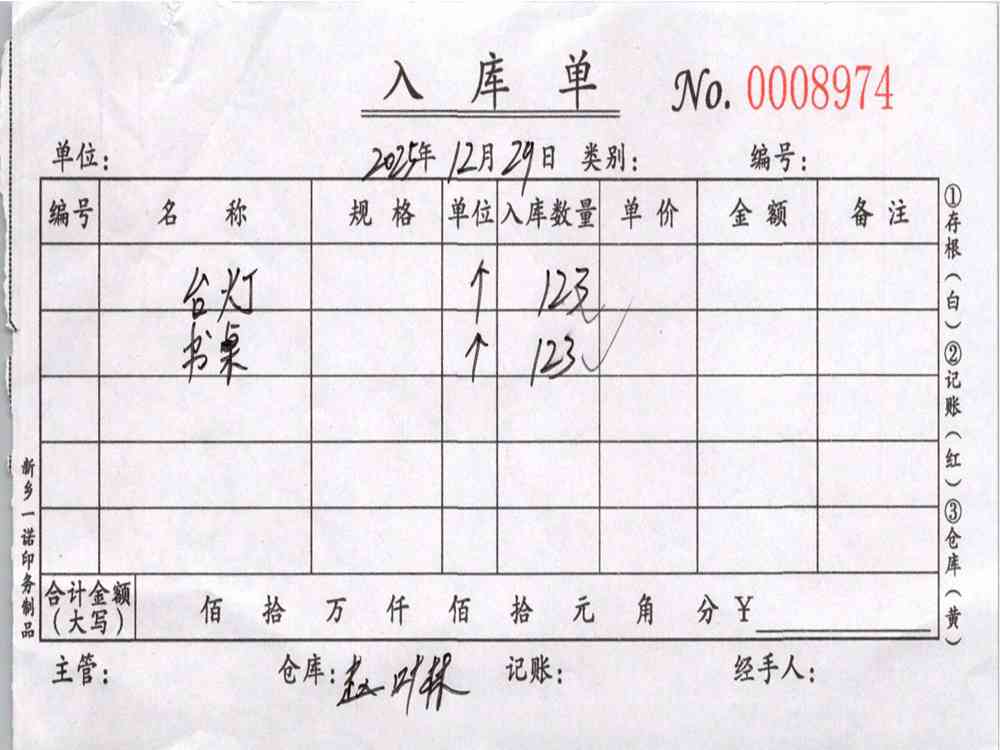 入库单 No. 0008974
单位： 2025年 12月 29日 类别： 编号：
编号 名称 规格 单位 入库数量 单价 金额 备注
台灯 个 123
书桌 个 123
合计金额（大写） 佰 拾 万 仟 佰 拾 元 角 分 ¥
主管： 仓库： 记账： 经手人：
①存根（白）②记账（红）③仓库（黄）
新乡一诺印务制品